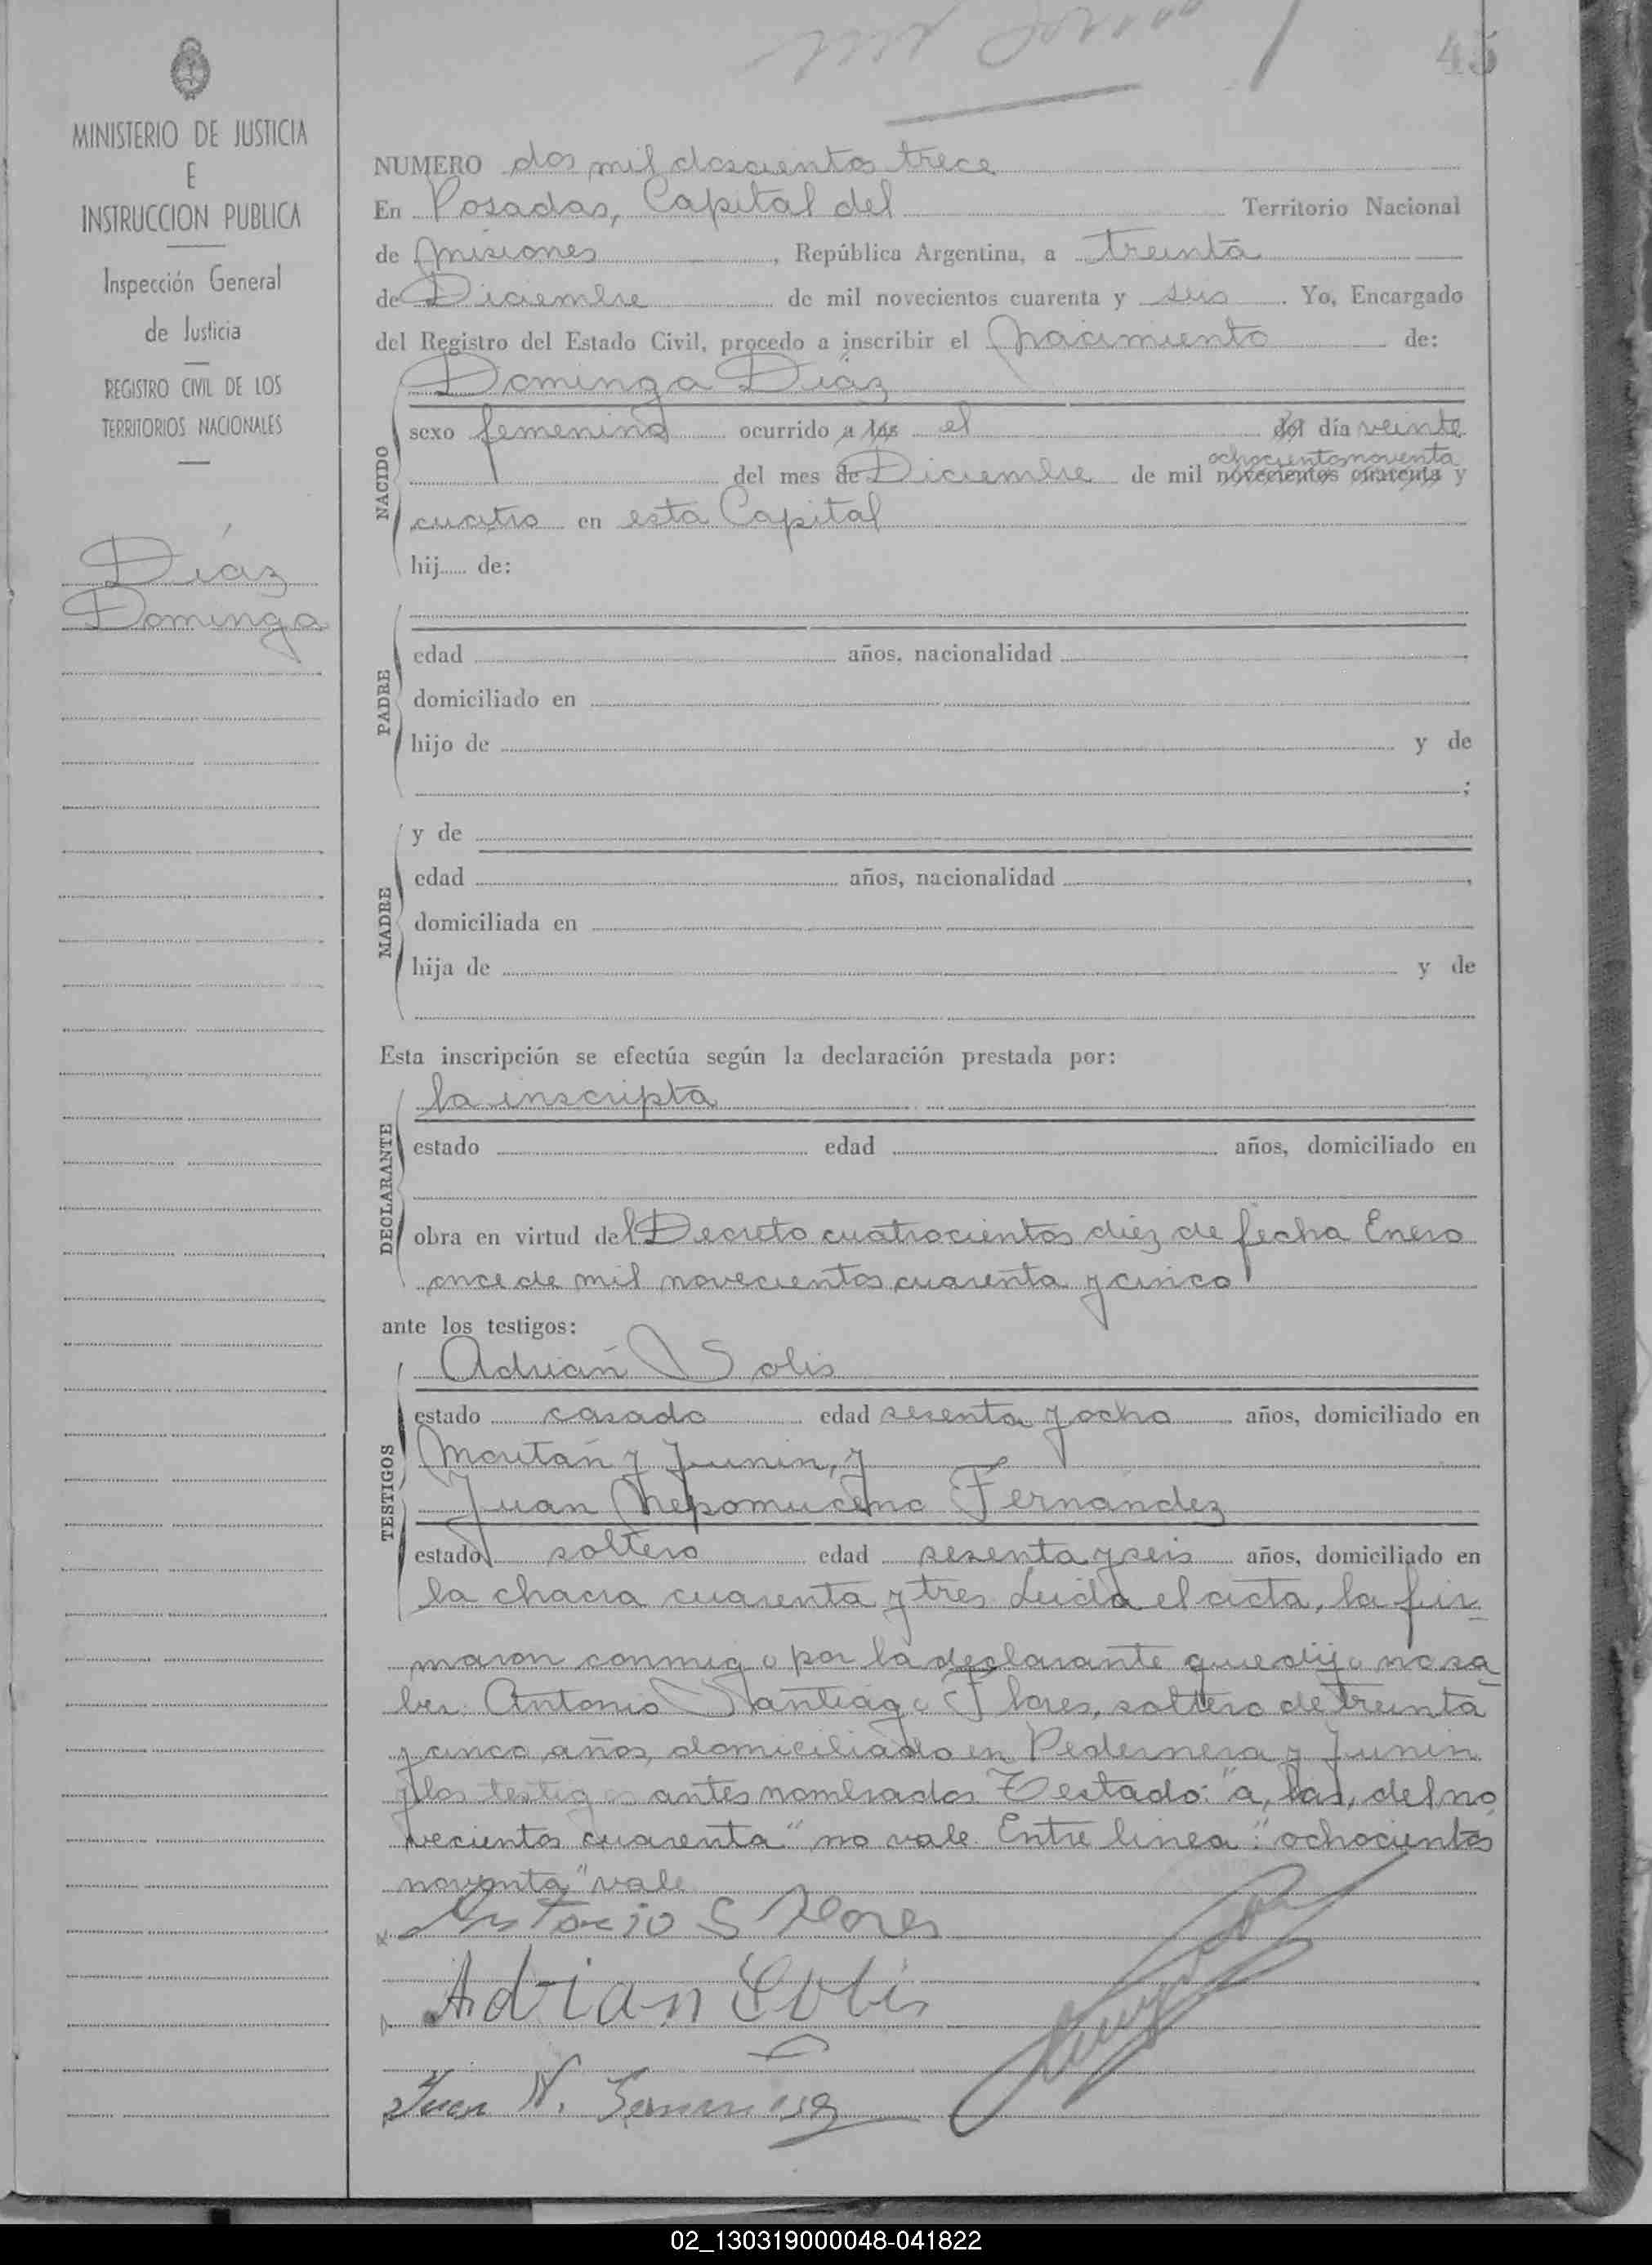 45
MINISTERIO DE JUSTICIA
E
INSTRUCCION PUBLICA
Inspección General
de Justicia
REGISTRO CIVIL DE LOS
TERRITORIOS NACIONALES
Díaz
Dominga
NUMERO dos mil doscientos trece
En Posadas, Capital del Territorio Nacional
de Misiones, República Argentina, a treinta
de Diciembre de mil novecientos cuarenta y seis. Yo, Encargado
del Registro del Estado Civil, procedo a inscribir el nacimiento de:
Dominga Díaz
NACIDO
sexo femenino ocurrido a las el del día veinte
ochocientos noventa
del mes de Diciembre de mil novecientos cuarenta y
cuatro en esta Capital
hij de:
PADRE
edad años, nacionalidad
domiciliado en
hijo de y de
;
MADRE
y de
edad años, nacionalidad
domiciliada en
hija de y de
Esta inscripción se efectúa según la declaración prestada por:
DECLARANTE
la inscripta
estado edad años, domiciliado en
obra en virtud del Decreto cuatrocientos diez de fecha Enero
once de mil novecientos cuarenta y cinco
ante los testigos:
TESTIGOS
Adrián Solis
estado casado edad sesenta y ocho años, domiciliado en
y Junin, y
Juan Nepomuceno Fernandez
estado soltero edad sesenta y seis años, domiciliado en
la chacra cuarenta y tres Leida el acta, la fir-
maron conmigo por la declarante que dijo no sa-
ber: Antonio Santiago Flores, soltero de treinta
y cinco años, domiciliado en Pedernera y Junin
y los testigos antes nombrados Testado: "a, las, del no
vecientos cuarenta" no vale. Entre linea: "ochocientos
noventa" vale
Antonio S Flores
Adrian Solis
Juan N. Fernandez
02_130319000048-041822